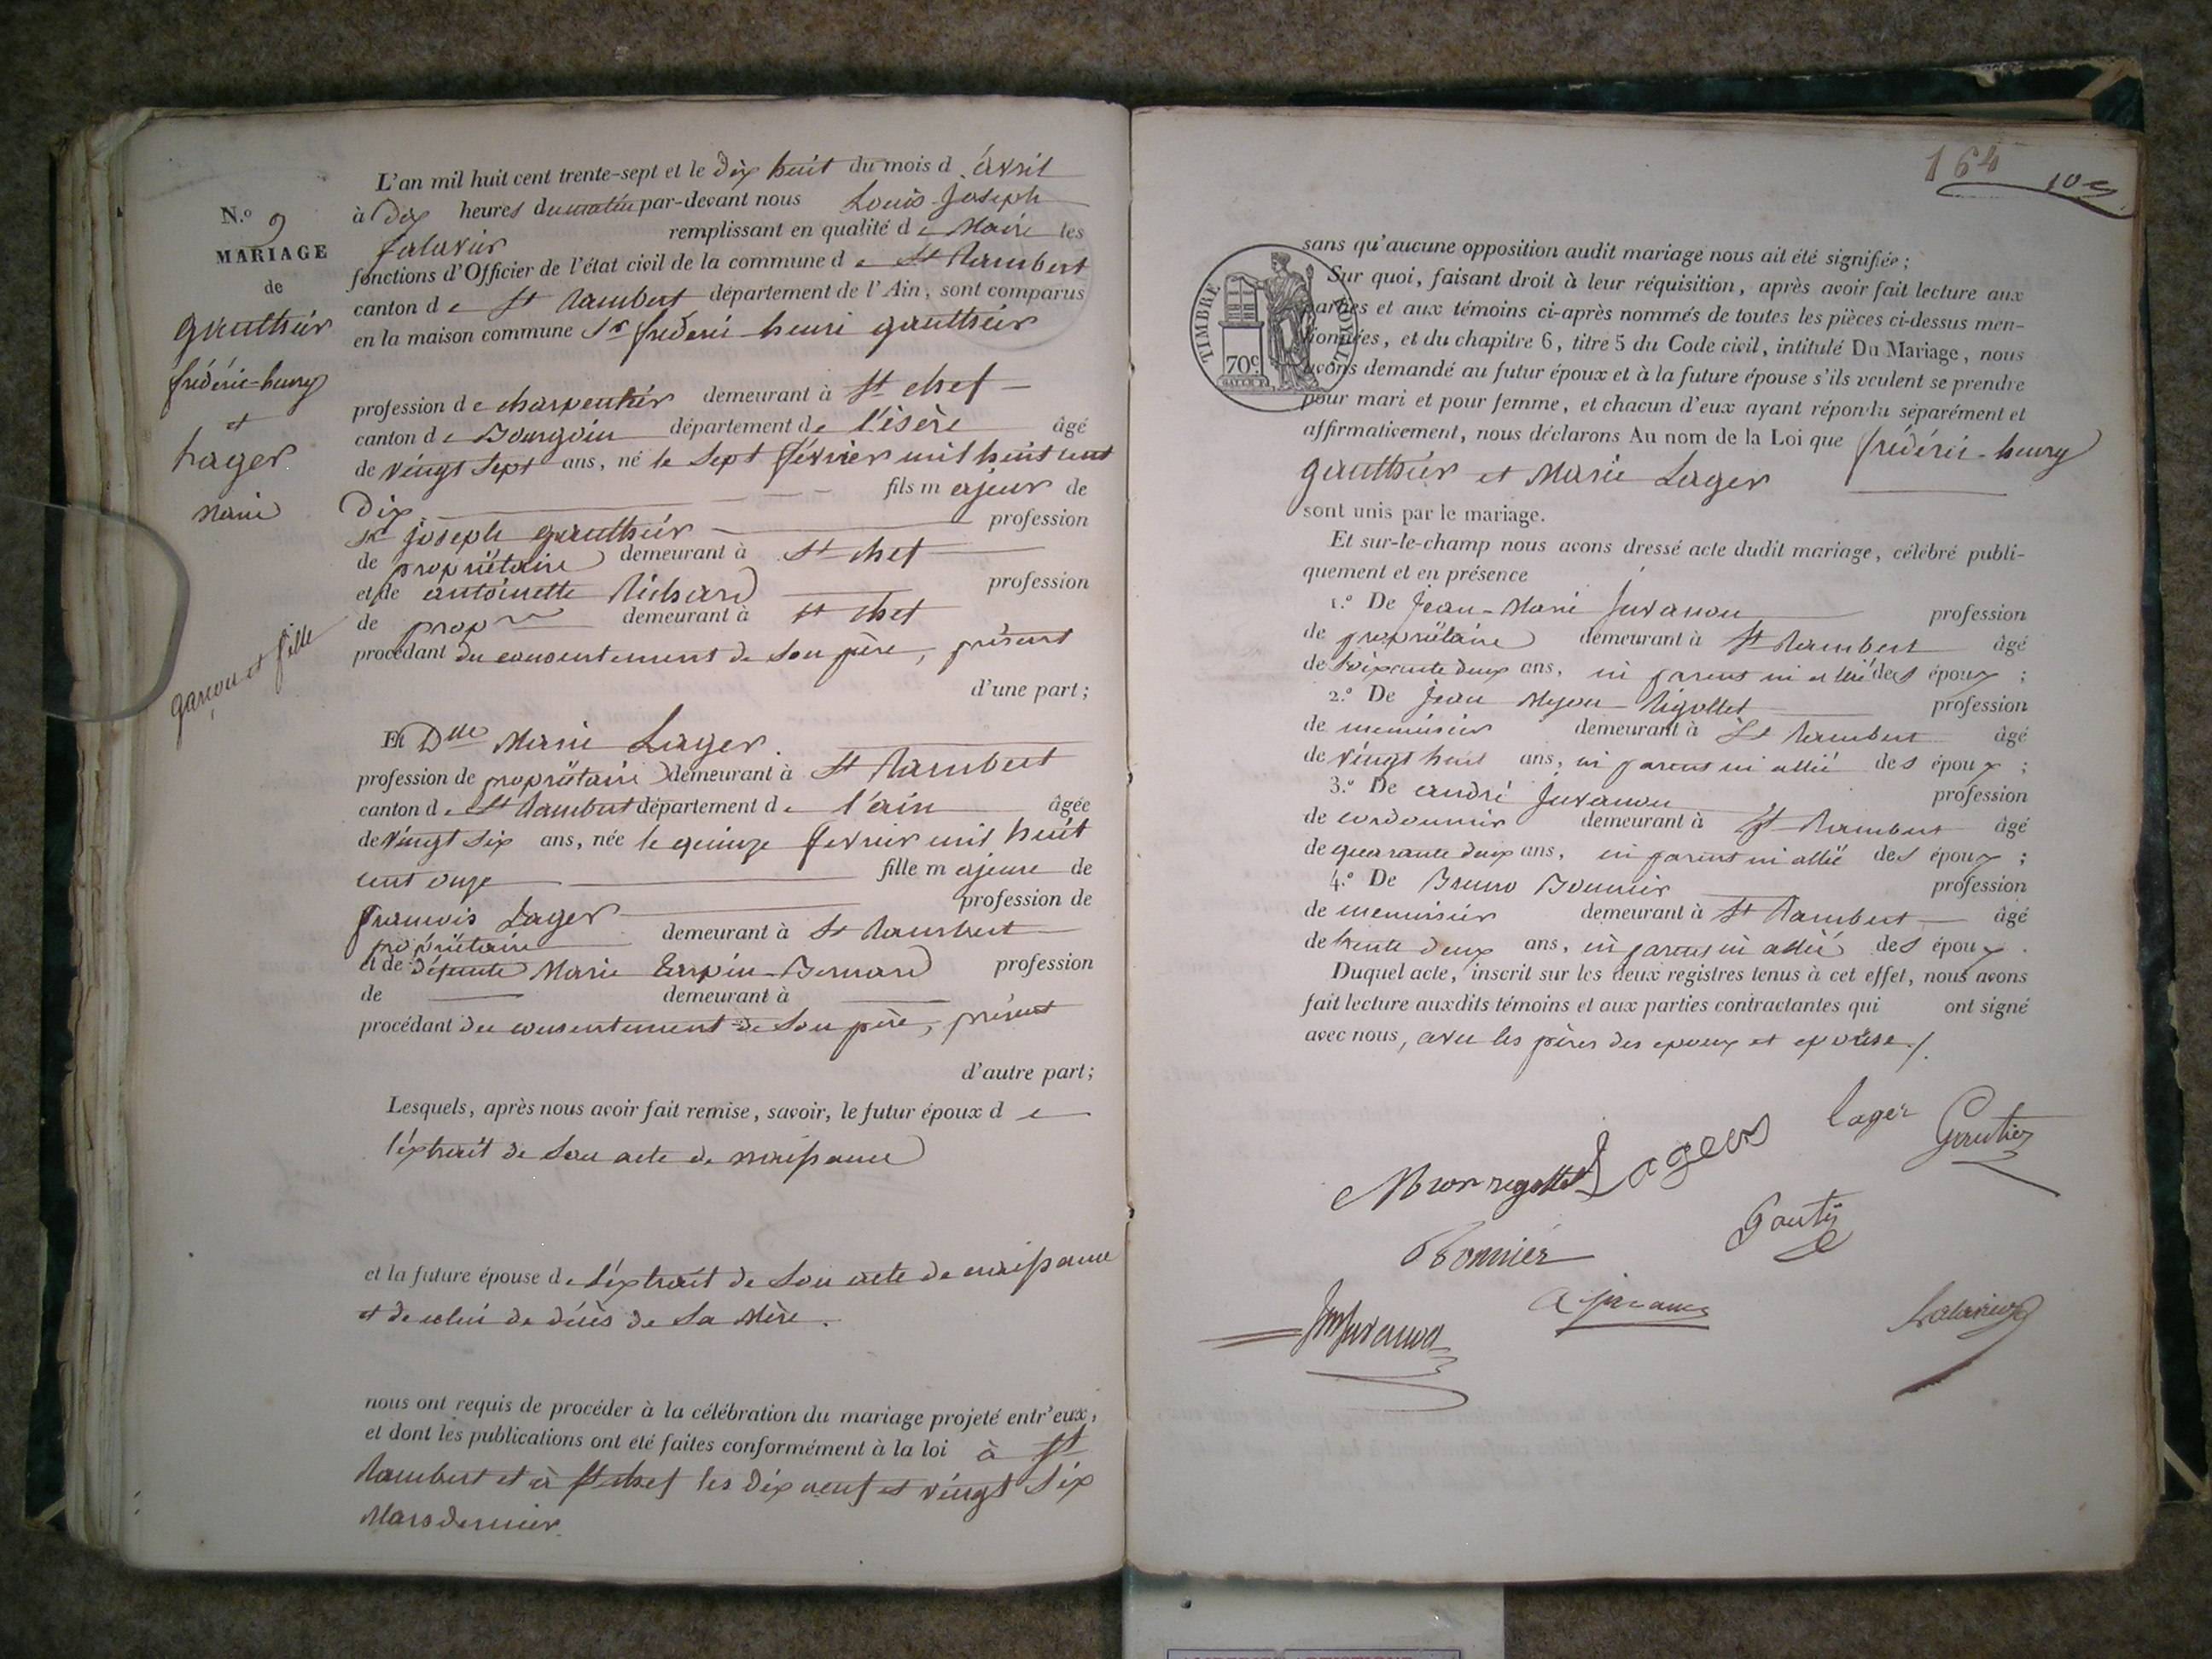 N.º 9
MARIAGE
de
gauthier
frédéric-henry
et
Lager
Marie
garçon et fille
L'an mil huit cent trente-sept et le dix huit du mois d'avril
à dix heures du matin par-devant nous Louis Joseph
remplissant en qualité de Maire les
fonctions d'Officier de l'état civil de la commune de St Rambert
canton de St Rambert département de l'Ain, sont comparus
en la maison commune Sr frederic henri gauthier
profession de charpentier demeurant à St chef
canton de Bourgoin département de l'isère âgé
de vingt sept ans, né le sept février mil huit cent
dix fils majeur de
Sr joseph gauthier profession
de propriétaire demeurant à St chef
et de antoinette Richard profession
de propre demeurant à St chef
procédant du consentement de son père, présent
d'une part;
Et Dlle Marie Lager.
profession de propriétaire demeurant à St Rambert
canton de St Rambert département de l'ain âgée
de vingt six ans, née le quinze fevrier mil huit
cent onze fille majeure de
françois Lager profession de
propriétaire demeurant à St Rambert
et de défunte Marie Bernard profession
de demeurant à
procédant du consentement de son père, présent
d'autre part;
Lesquels, après nous avoir fait remise, savoir, le futur époux de
l'extrait de son acte de naissance
et la future épouse de l'extrait de son acte de naissance
et de celui de décès de sa Mère.
nous ont requis de procéder à la célébration du mariage projeté entr'eux,
et dont les publications ont été faites conformément à la loi à St
Rambert et à St chef les dix neuf et vingt six
Mars dernier.
164
10e
TIMBRE ROYAL
70c.
sans qu'aucune opposition audit mariage nous ait été signifiée;
Sur quoi, faisant droit à leur réquisition, après avoir fait lecture aux
parties et aux témoins ci-après nommés de toutes les pièces ci-dessus men-
tionnées, et du chapitre 6, titre 5 du Code civil, intitulé Du Mariage, nous
avons demandé au futur époux et à la future épouse s'ils veulent se prendre
pour mari et pour femme, et chacun d'eux ayant répondu séparément et
affirmativement, nous déclarons Au nom de la Loi que frédéric-henry
gauthier et Marie Lager
sont unis par le mariage.
Et sur-le-champ nous avons dressé acte dudit mariage, célébré publi-
quement et en présence
1.º De Jean-Marie Juvanon profession
de propriétaire demeurant à St Rambert âgé
de soixante deux ans, ni parent ni allié des époux;
2.º De Jean Myon Rigollet profession
de menuisier demeurant à St Rambert âgé
de vingt huit ans, ni parent ni allié des époux;
3.º De andré Juvanon profession
de cordonnier demeurant à St Rambert âgé
de quarante deux ans, ni parent ni allié des époux;
4.º De Bruno Bonnier profession
de menuisier demeurant à St Rambert âgé
de trente deux ans, ni parent ni allié des époux.
Duquel acte, inscrit sur les deux registres tenus à cet effet, nous avons
fait lecture auxdits témoins et aux parties contractantes qui ont signé
avec nous, avec les pères des epoux et epouse./.
Lager
Gautier
Bonnier